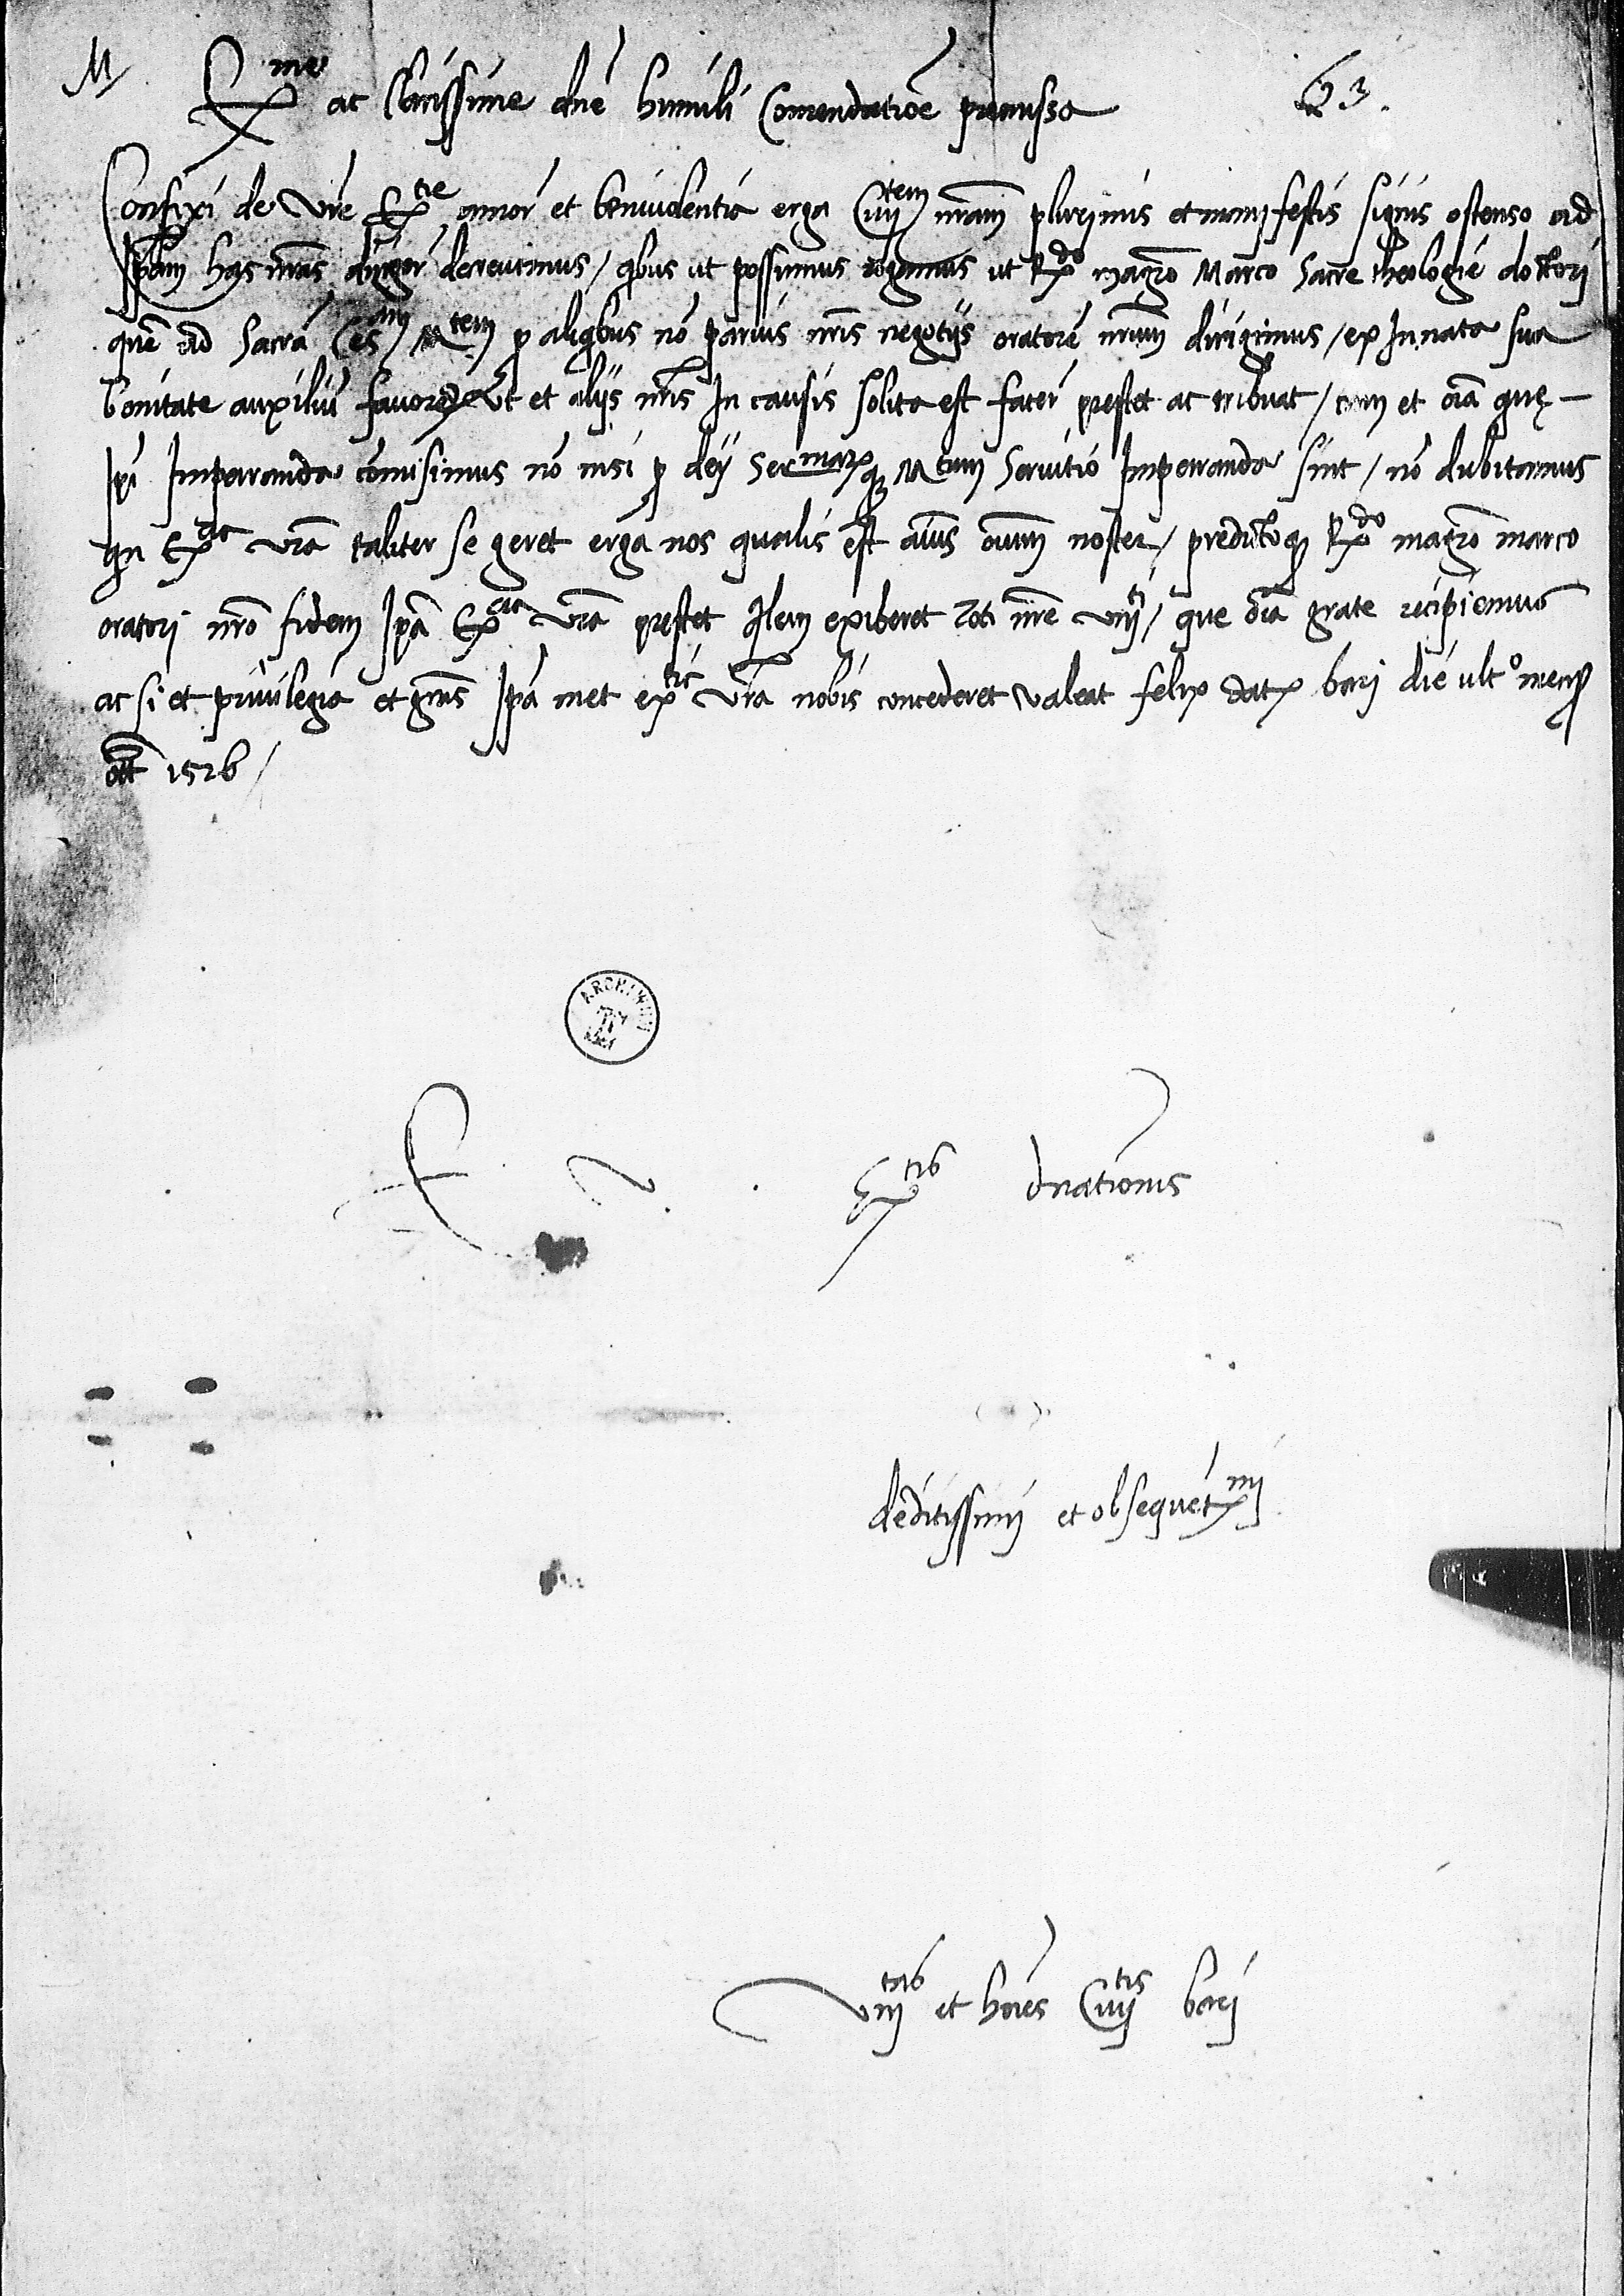 M 63.
Exme ac Clarissime dne humili Comendatiõe premissa
Confixi de vre Extie amor et beniuolentia erga Ciuitem nram plurimis et manifestis signis ostenso ad
Ipam has nras diriger decreuimus / qbus ut possumus rogamus ut Rdo magro Marco Sacre theologie doctori
quẽ ad Sacrã Cesam Mtem p aliqbus nõ paruis nris negotijs oratorẽ nrum dirigimus / ex Innata sua
bonitate auxiliũ fauorẽ ut et alijs nris In causis solita est facer prestet ac tribuat / cum et oĩa quę
Ipi Impetranda comisimus nõ nisi p dej Sermarq Mtum Seruitio Impetranda sint / nõ dubitamus
qn Extia vra taliter se geret erga nos qualis est aĩus noster / predictoq Rdo magro marco
oratori nro fidem Ipã Extia vra prestet qlem exiberet toti nre vnitj / que oĩa grate recipiemus
ac si et priuilegia et gras Ipa met extia vra nobis concederet valeat felix dat barj die ulto mens
ott 1526 /
ARCHIWUM
E v. Extis dnationis
deditissimj et obsequetmj
vnitas et hoies Ciuitis barj